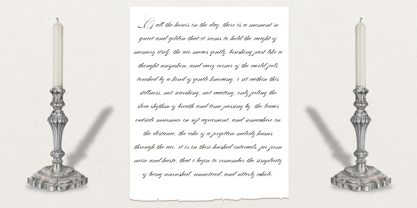 Of all the hours in the day, there is a moment so
quiet and golden that it seems to hold the weight of
memory itself. the air moves gently, brushing past like a
thought unspoken, and every corner of the world feels
touched by a kind of gentle knowing. i sit within this
stillness, not searching, not waiting, only feeling the
slow rhythm of breath and time passing by. the leaves
outside murmur in soft agreement, and somewhere in
the distance, the echo of a forgotten melody hums
through the air. it is in these hushed intervals, far from
noise and haste, that i begin to remember the singularity
of being unwatched, unhurried, and utterly whole.